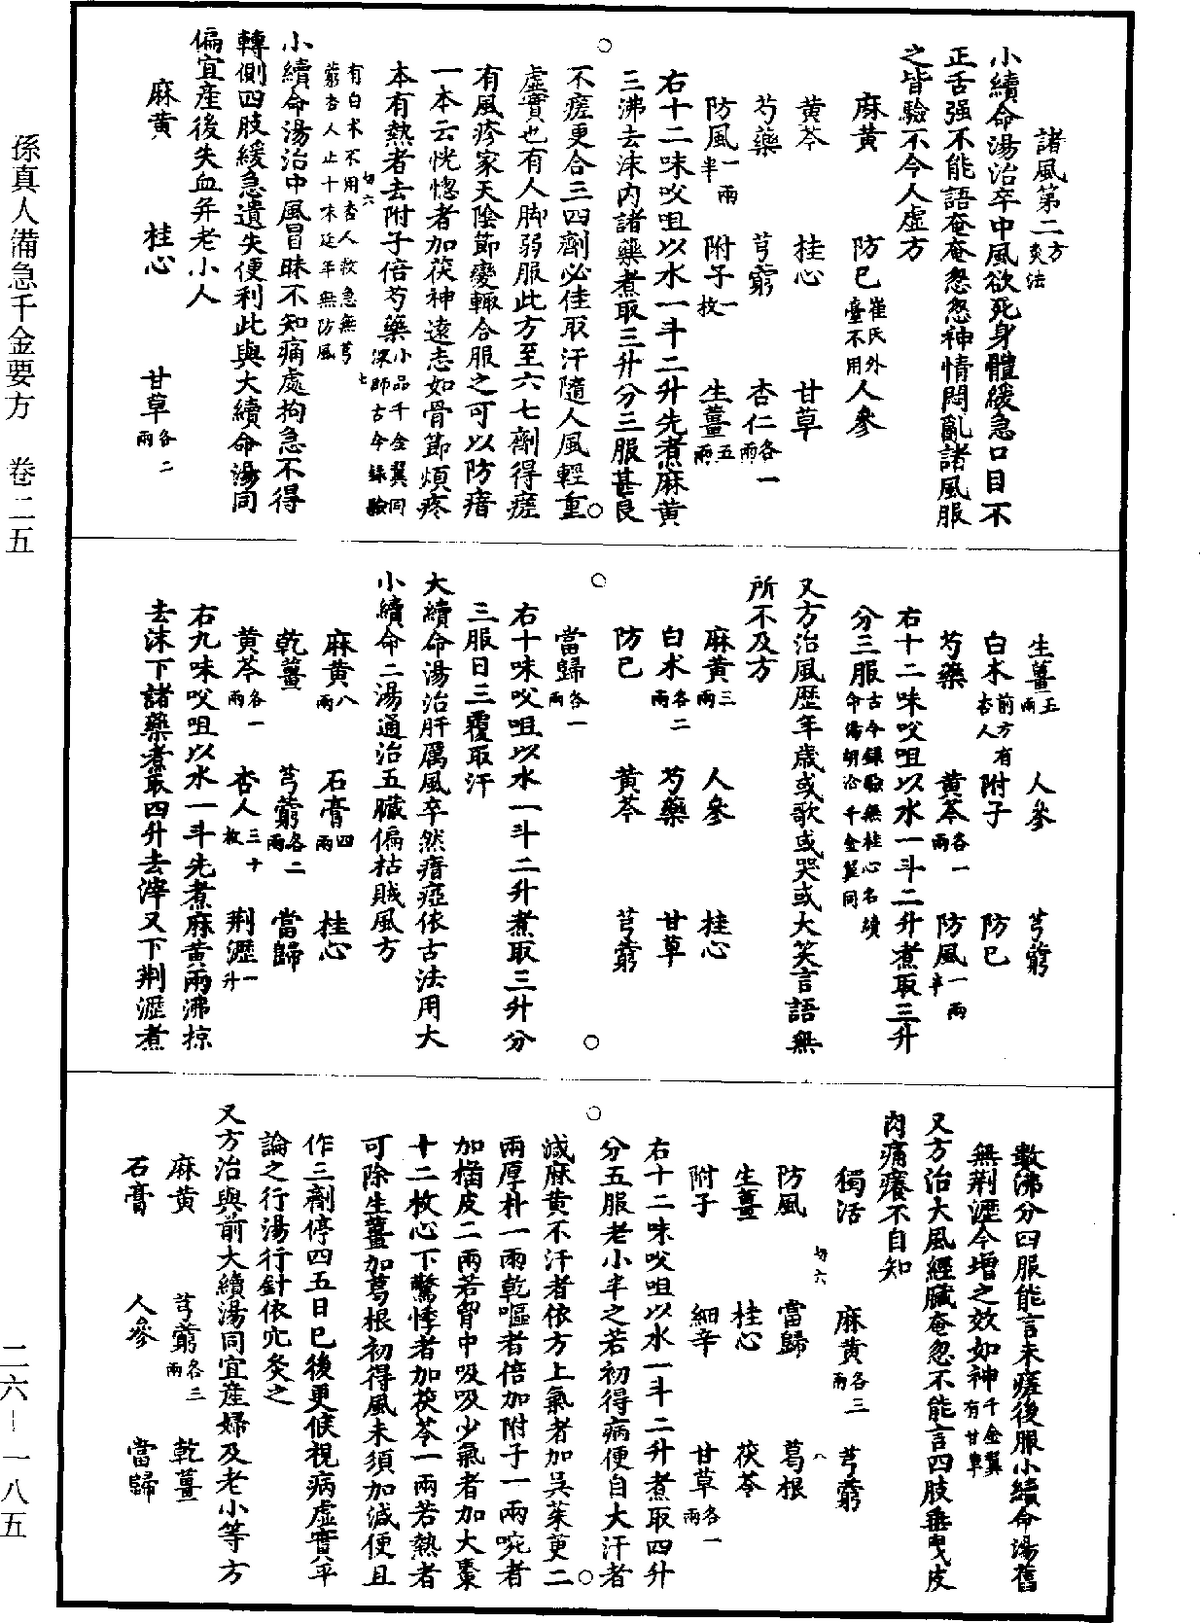 諸風第二方灸法
小續命湯治卒中風欲死身體緩急口目不
正舌强不能語奄奄忽忽神情悶亂諸風服
之皆驗不令人虛方
麻黄 防已崔氏外臺不用 人參
黄芩 桂心 甘草
芍藥 芎藭 杏仁各一兩
防風一兩半 附子一枚 生薑五兩
右十二味㕮咀以水一斗二升先煮麻黄
三沸去沫內諸藥煮取三升分三服甚良
不瘥更合三四劑必佳取汗隨人風輕重
虛實也有人脚弱服此方至六七劑得瘥
有風疹家天陰節變輒合服之可以防瘖
一本云恍惚者加茯神遠志如骨節煩疼
本有熱者去附子倍芍藥小品千金翼同深師古今錄驗
有白术不用杏人救急無芎藭杏人止十味延年無防風
切六
七
小續命湯治中風冒昧不知痛處拘急不得
轉側四肢緩急遺失便利此與大續命湯同
偏宜産後失血并老小人
麻黄 桂心 甘草各二兩
生薑五兩 人參 芎藭
白术前方有杏人 附子 防已
芍藥 黄芩各一兩 防風一兩半
右十二味㕮咀以水一斗二升煮取三升
分三服古今錄驗無桂心名續命湯胡洽千金翼同
又方治風歷年歲或歌或哭或大笑言語無
所不及方
麻黄三兩 人參 桂心
白术各二兩 芍藥 甘草
防已 黄芩 芎藭
當歸各一兩
右十味㕮咀以水一斗二升煮取三升分
三服日三覆取汗
大續命湯治肝厲風卒然瘖瘂依古法用大
小續命二湯通治五臟偏枯賊風方
麻黄八兩 石膏四兩 桂心
乾薑 芎藭各二兩 當歸
黄芩各一兩 杏人三十枚 荆瀝一升
右九味㕮咀以水一斗先煮麻黄兩沸掠
去沫下諸藥煮取四升去滓又下荆瀝煮
數沸分四服能言未瘥後服小續命湯舊
無荆瀝今增之效如神千金翼有甘草
又方治大風經臟奄忽不能言四肢垂曳皮
肉痛癢不自知
獨活 麻黄各三兩 芎藭
防風 當歸 葛根
生薑 桂心 茯苓
附子 細辛 甘草各一兩
切六
八
右十二味㕮咀以水一斗二升煮取四升
分五服老小半之若初得病便自大汗者
減麻黄不汗者依方上氣者加吳茱萸二
兩厚朴一兩乾嘔者倍加附子一兩啘者
加橘皮二兩若胷中吸吸少氣者加大棗
十二枚心下驚悸者加茯苓一兩若熱者
可除生薑加葛根初得風未須加減便且
作三劑停四五日已後更候視病虛實平
論之行湯行針依穴灸之
又方治與前大續湯同宜産婦及老小等方
麻黄 芎藭各三兩 乾薑
石膏 人參 當歸
孫真人備急千金要方 卷二五
二六－一八五